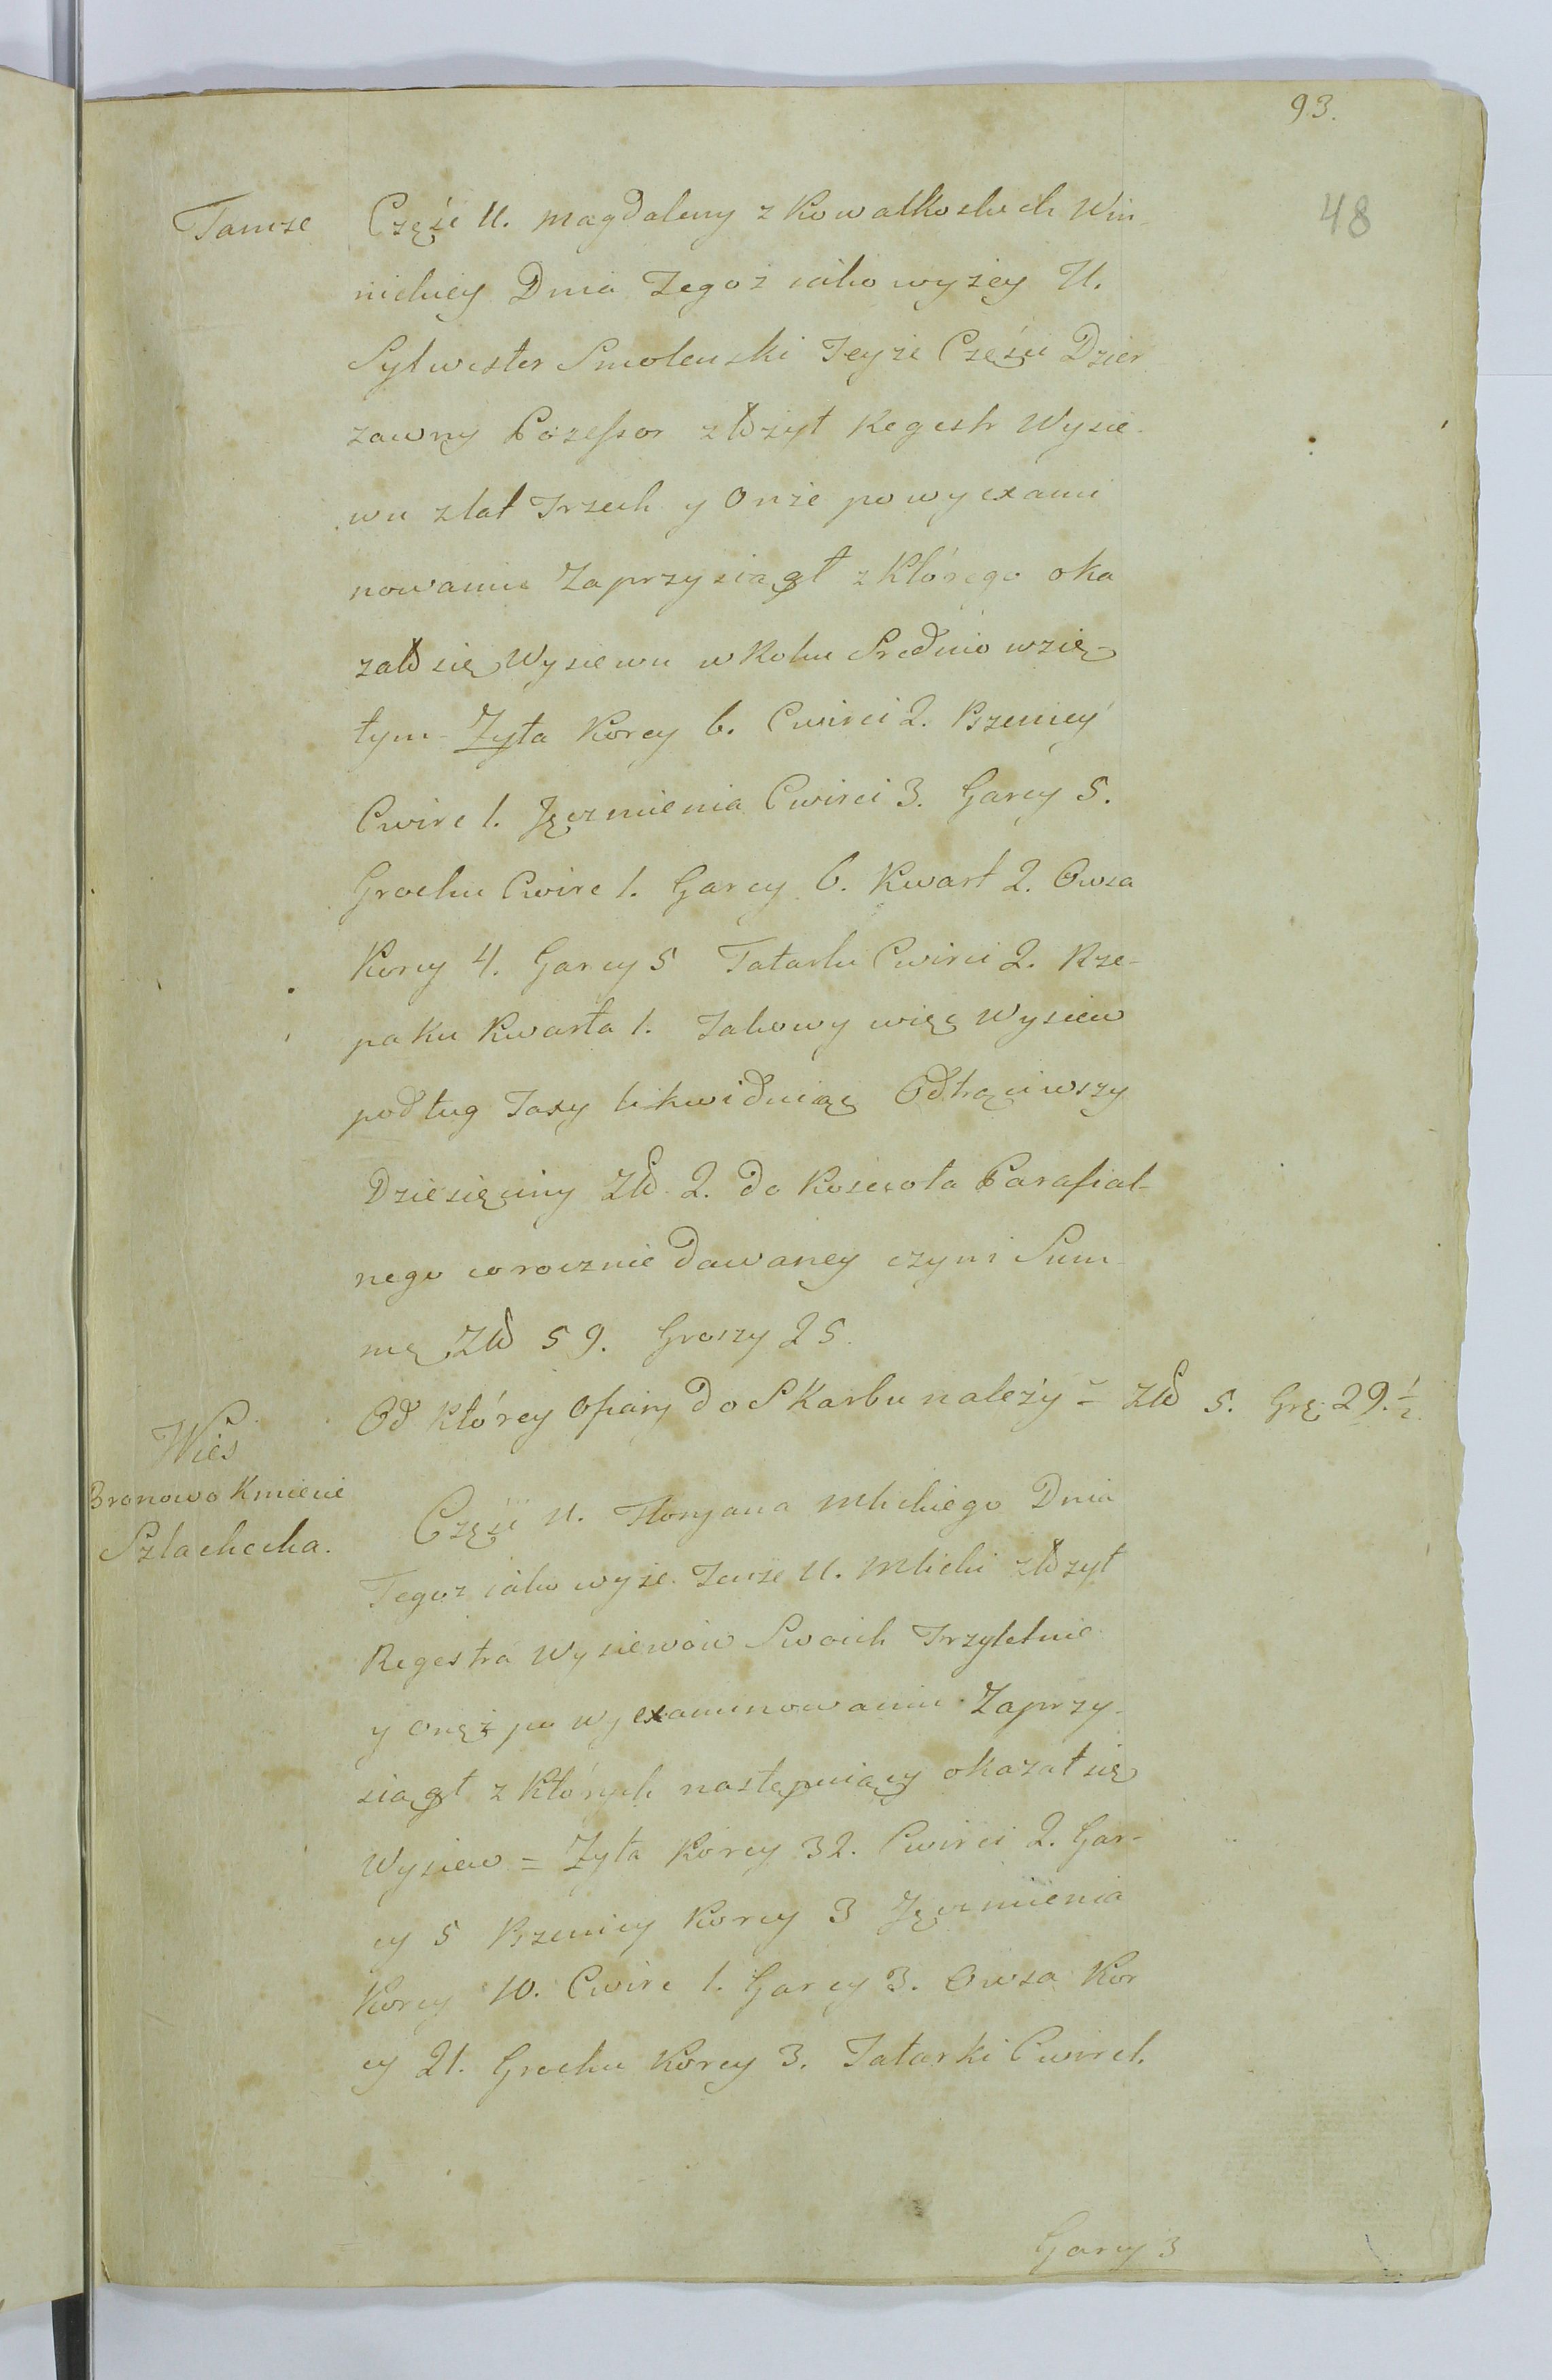 93.
48
Tamże
Część U. Magdaleny z Kowalkoskich Win-
nickiey Dnia Tegoż iako wyżey U.
Sylwester Smolenski Teyże Części Dzier
zawny Possessor złożył Regestr Wysie-
wu z lat Trzech y Onże po wyexami
nowaniu Zaprzysiągł z którego oka
zało się Wysiewu w Roku Srednio wzię-
tym - Zyta Korcy 6. Cwierci 2. Pszenicy
Cwierc 1. Jęczmienia Cwierci 3. Garcy 5.
Grochu Cwierc 1. Garcy 6. Kwart 2. Owsa
Korcy 4. Garcy 5 Tatarki Cwierci 2. Rze-
paku Kwarta 1. Takowy więc Wysiew
podług Taxy likwiduiąc Odtrąciwszy
Dziesięciny Zło. 2. do Koscioła Parafial-
nego corocznie dawaney czyni Sum-
mę Zło 59. Groszy 25.
Od którey Ofiary do Skarbu należy = Zło 5. Grę. 29. 1/2
Wies
Bronowo Kmiecie
Szlachecka.
Część U. Floryana Mlickiego Dnia
Tegoz iako wyże. Tenże U. Mlicki złożył
Regestra Wysiewow Swoich Trzyletnie
y oneż po wyexaminowaniu Zaprzy-
siągł z których następuiący okazał się
Wysiew = Zyta Korcy 32. Cwierci 2. Gar-
cy 5 Pszenicy Korcy 3 Jęczmienia
Korcy 10. Cwierc 1. Garcy 3. Owsa Kor
cy 21. Grochu Korcy 3. Tatarki Cwierc 1.
Garcy 3